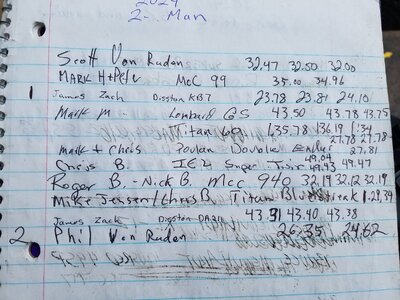 2024
2- Man
Scott Von Ruden 32.47 32.50 32.00
MARK H + Pete McC 99 35.00 34.96
1 James Zach Disston KB7 23.78 23.81 24.10
Mark M - Lombard GS 43.50 43.78 43.75
Titan 1:35.78 1:36.19 1:34
27.78 27.78
Mark + Chris Poulan Double Ender 27.81
Chris B. IEL Super Twin 49.04 49.43 49.47
Roger B. - Nick B. Mcc 940 32.19 32.12 32.19
Mike Jensen/Chris B Titan Bluestreak 1:29.34
James Zach Disston DA211 43.31 43.40 43.38
2 Phil Von Ruden 26.35 24.62